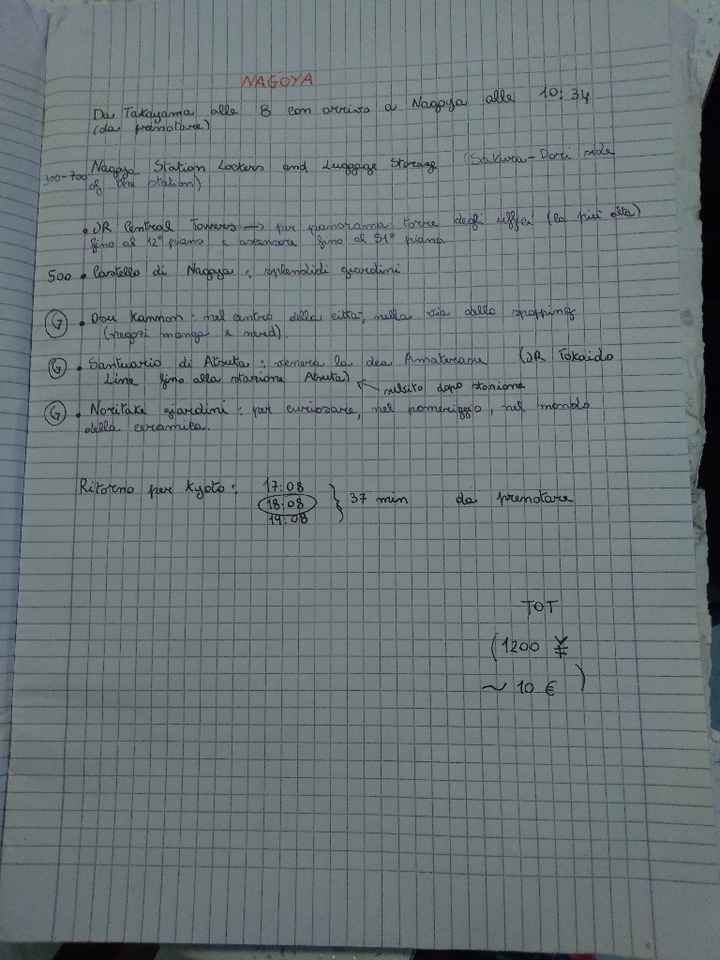 NAGOYA
Da Takayama alle 8 con arrivo a Nagoya alle 10:34
(da prenotare)
300-700 Nagoya Station Lockers and Luggage Storage (Sakura-Dori side
of the station)
• JR Central Towers → per panorama torre degli uffici (la più alta)
fino al 12° piano e ascensore fino al 51° piano
500 • Castello di Nagoya e splendidi giardini
G • Osu Kannon: nel centro della città, nella via dello shopping
(negozi manga e nerd)
G • Santuario di Atsuta: venera la dea Amaterasu (JR Tokaido
Line fino alla stazione Atsuta) subito dopo stazione
G • Noritake giardini: per curiosare, nel pomeriggio, nel mondo
della ceramica.
Ritorno per Kyoto: 17:08
18:08 } 37 min da prenotare
19:08
TOT
(1200 ¥
~ 10 €)